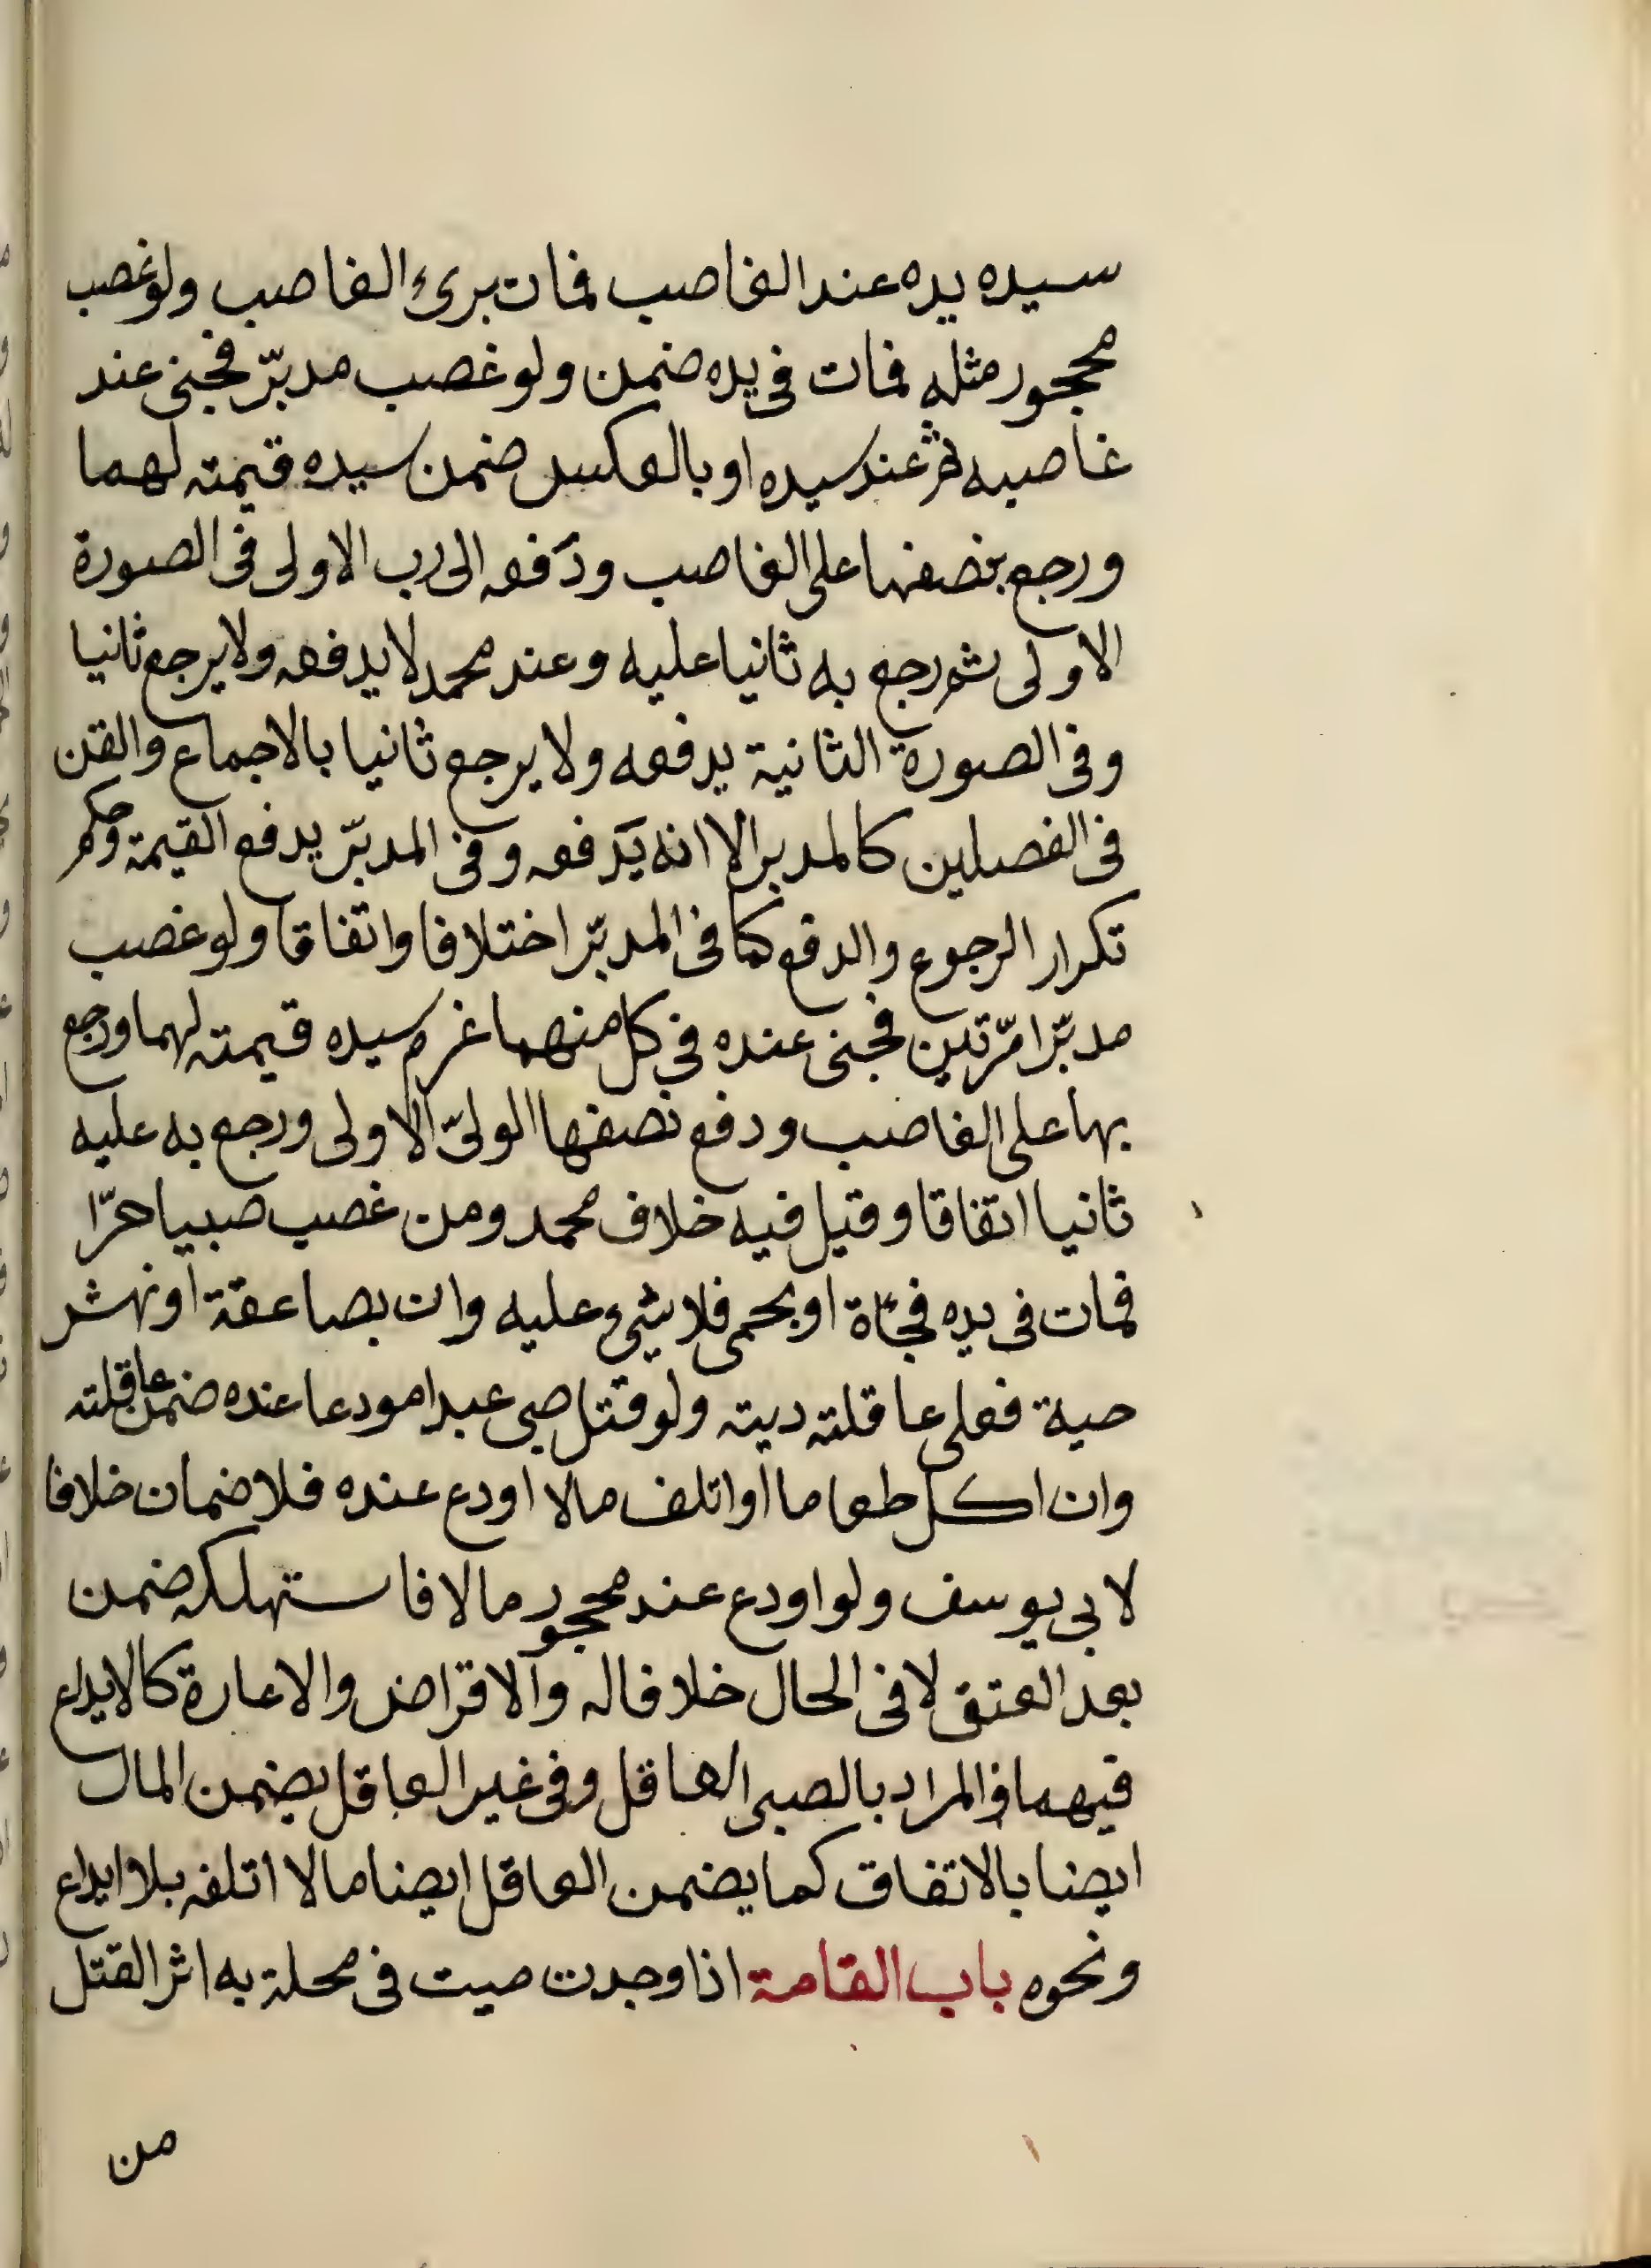 سيده يده عند الغاصب فمات برئ الغاصب ولو غصب
محجور مثله فمات فى يده ضمن ولو غصب مدبّر فجنى عند
غاصبه ثم عند سيده او بالعكس ضمن سيده قيمته لهما
ورجع بنصفها على الغاصب ودفعه الى رب الاولى فى الصورة
الاولى ثم رجع به ثانيا عليه وعند محمد لا يدفعه ولا يرجع ثانيا
وفى الصورة الثانية يدفعه ولا يرجع ثانيا بالاجماع والقن
فى الفصلين كالمدبر الا انه يدفعه وفى المدبّر يدفع القيمة وحكم
تكرار الرجوع والدفع كما فى المدبّر اختلافا واتفاقا ولو غصب
مدبّرا مرّتين فجنى عنده فى كل منهما غرم سيده قيمته لهما ورجع
بها على الغاصب ودفع نصفها الولىّ الاولى ورجع به عليه
ثانيا اتفاقا وقيل فيه خلاف محمد ومن غصب صبيا حرّا
فمات فى يده فجأة او بحمى فلا شئ عليه وان بصاعقة او نهش
حية فعلى عاقلته ديته ولو قتل صبى عبدا مودعا عنده ضمن عاقلته
وان اكل طعاما او اتلف مالا اودع عنده فلا ضمان خلافا
لابى يوسف ولو اودع عند محجور مالا فاستهلكه ضمن
بعد العتق لا فى الحال خلافا له والاقراض والاعارة كالايداع
فيهما والمراد بالصبى العاقل وفى غير العاقل يضمن المال
ايضا بالاتفاق كما يضمن العاقل ايضا مالا اتلفه بلا ايداع
ونحوه باب القامة اذا وجدت ميت فى محلة به اثر القتل
من